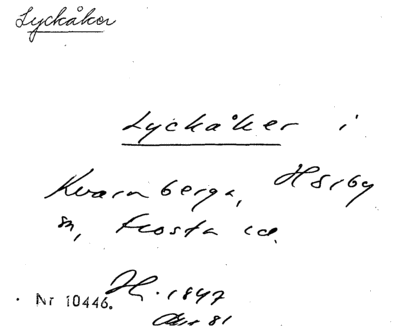 Lyckåker
Lyckåker i
Kvarnberga, Hörby
sn, Frosta hd.
Nr 10446. H. 1847
81